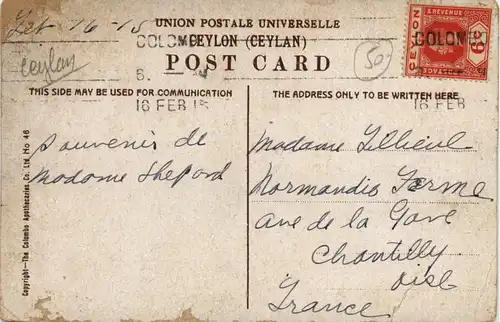 Feb 16-15
UNION POSTALE UNIVERSELLE
CEYLON (CEYLAN)
POST CARD
Ceylan
50
COLOMBO
16 FEB 15
& REVENUE
POSTAGE
6
COLOMBO
16 FEB
THIS SIDE MAY BE USED FOR COMMUNICATION
THE ADDRESS ONLY TO BE WRITTEN HERE
Souvenir de
Madame Shepord
Copyright—The Colombo Apothecaries Co. Ltd. No 46
Madame
Normandie Ferme
Ave de la Gare
Chantilly
Oise
France